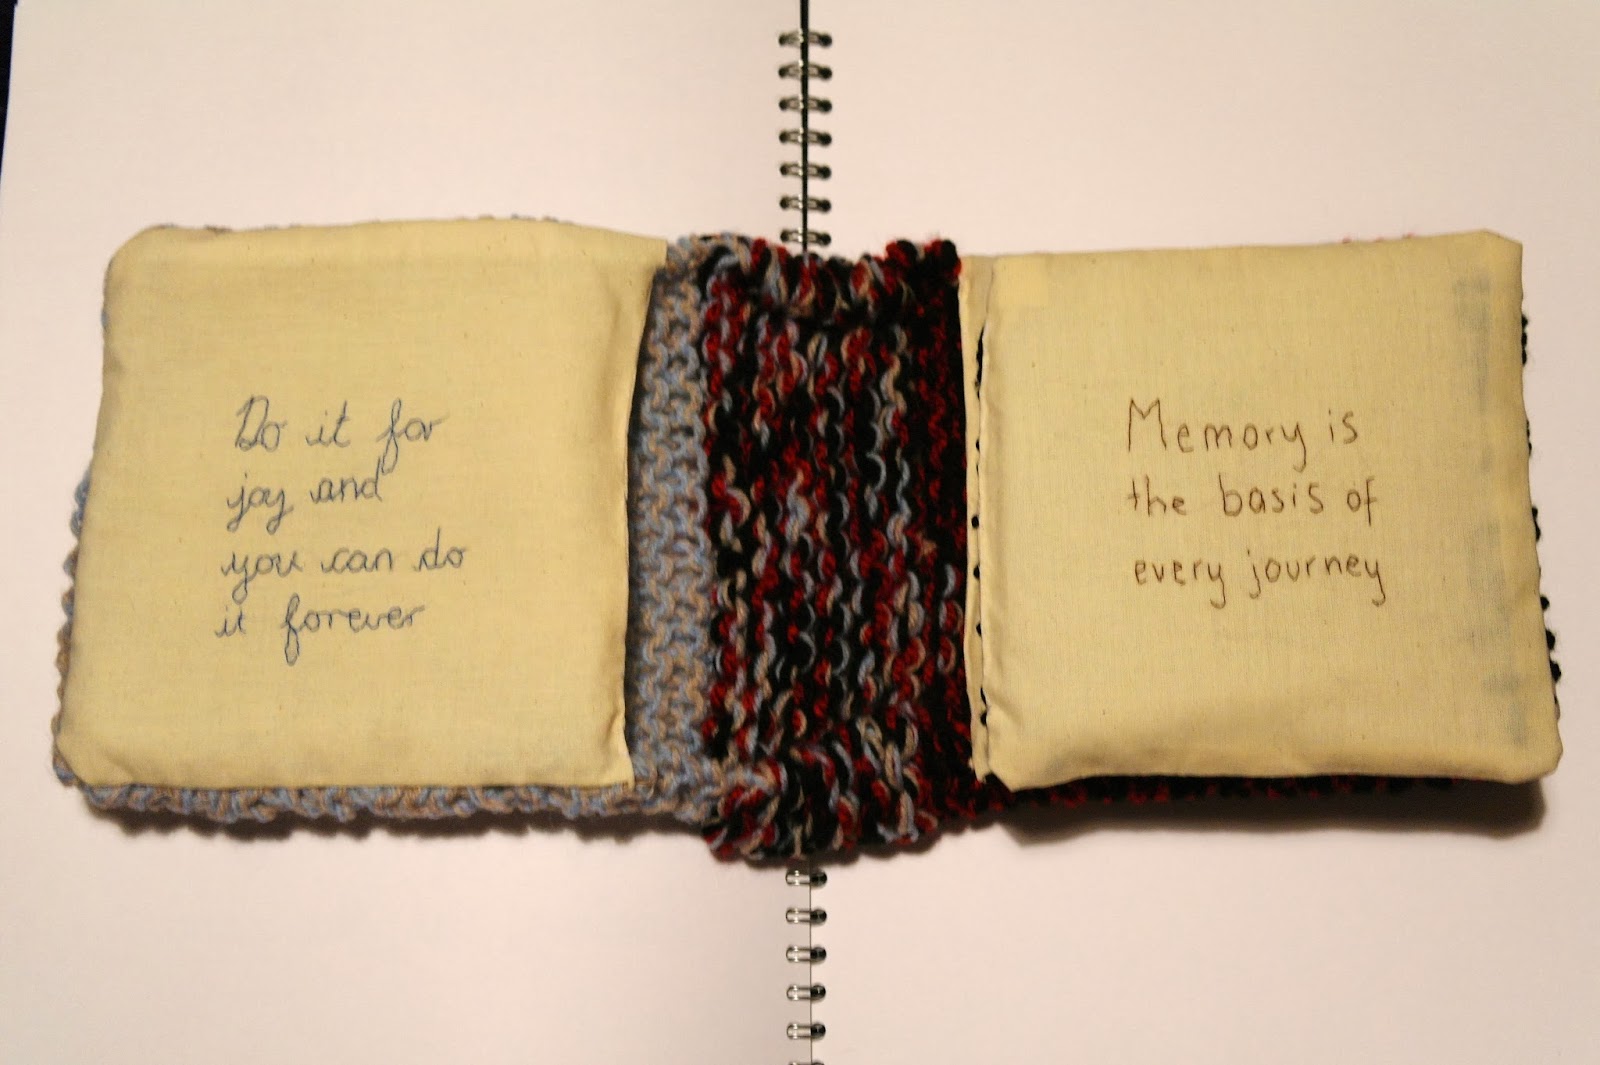 Do it for
joy and
you can do
it forever
Memory is
the basis of
every journey